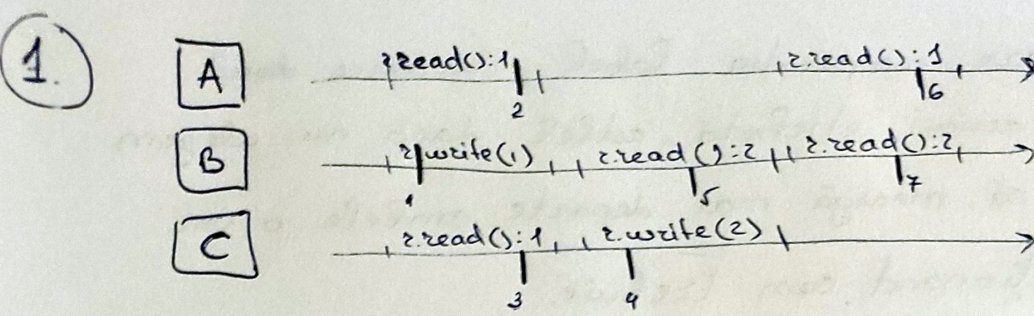 1.
A r.read():1 r.read():1
2 6
B r.write(1) r.read():2 r.read():2
1 5 7
C r.read():1 r.write(2)
3 4